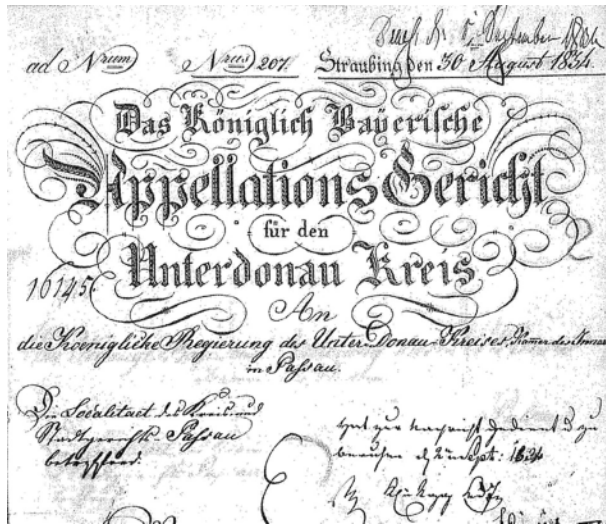 5. September 1834
ad Nrum Nrus 207. Straubing den 30 August 1834.
Das Königlich Bayerische
Appellations Gericht
für den
Unterdonau Kreis
16145
An
die Koenigliche Regierung des Unter-Donau-Kreises, Kamer des Innern
in Passau.
Die Localitaet des Kreis- und
Stadtgerichts Passau
betreffend.
zur Nachricht gedient zu
beruhen Sept: 1834